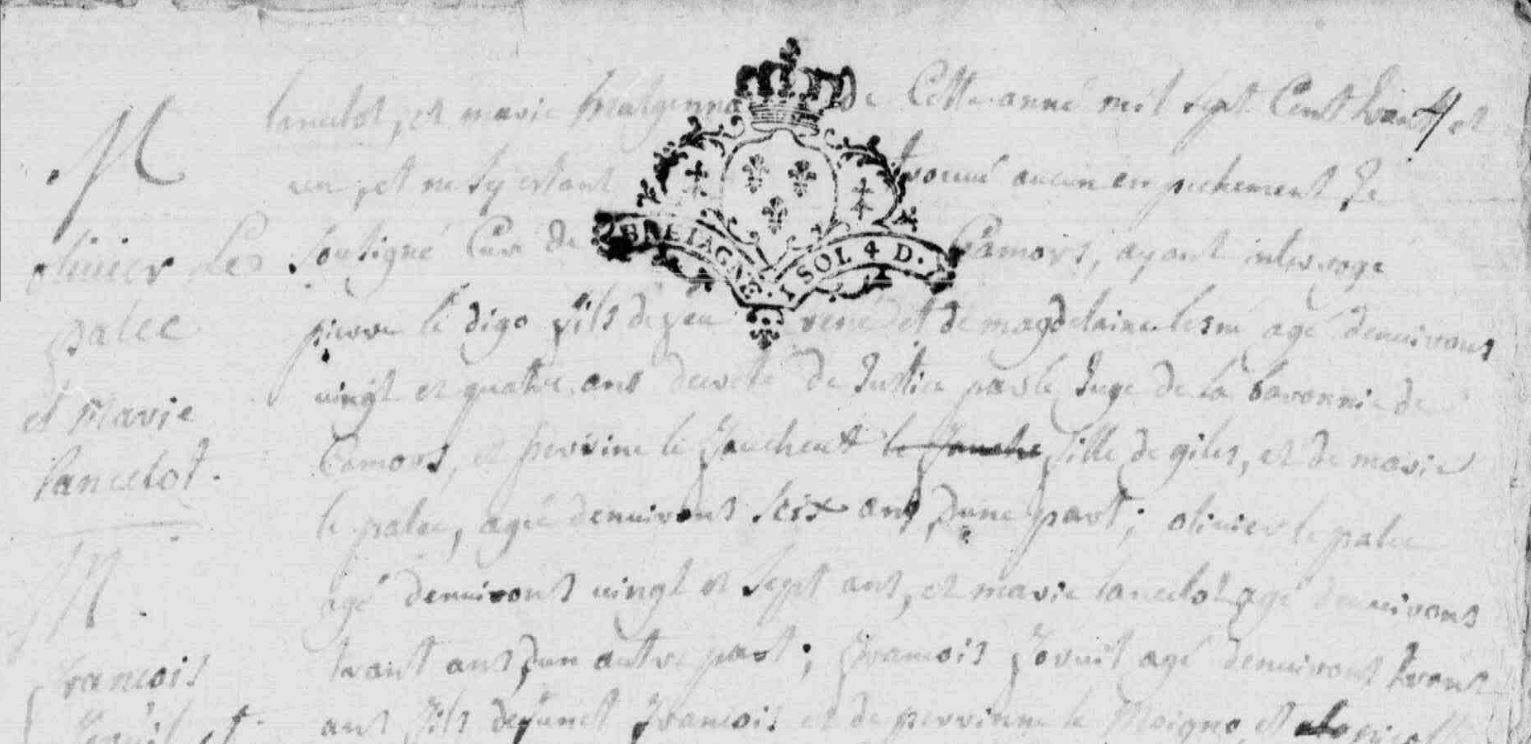 M
olivier Le
palec
et Marie
lancelot.
M.
francois
lancelot, et marie de Cette anné mil sept Cent trant et
un, et ne sy estant trouvé aucun enpichement Je
sousigné Curé de Camors, ayant interrogé
BRETAGNE. 1 SOL 4 D.
4
pierre le digo fils de feu rene et de magdelaine lesné agé denuirons
uingt et quatre ans decreté de Justice par le Juge de la baronnie de
Camors, et perrine le Jouche fille de giles, et de marie
le palec, agé denuirons seix ans, dune part; oliuier le palec
agé denuirons uingt et sept ans, et marie lancelot agé denuirons
trant ans dun autre part; francois agé denuirons trant
ans fils defunct francois et de perrinne le Moigno, et